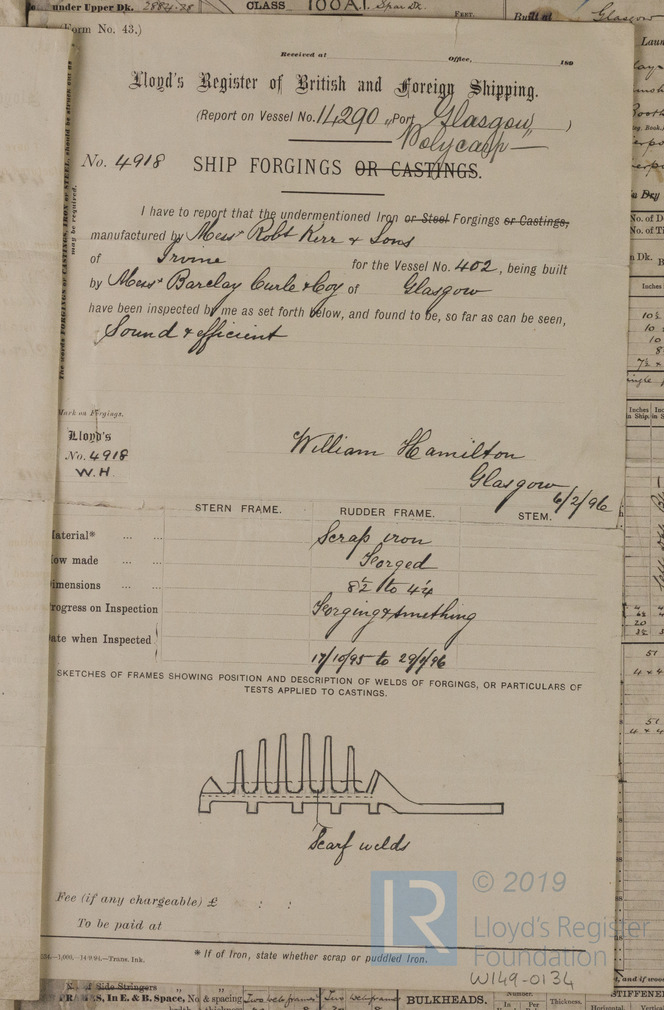 under Upper Dk. 2884.28 CLASS 100 A.1. Spar Dk. FEET. Built at Glasgow
Form No. 43.)
Received at Office, 189
Lloyd's Register of British and Foreign Shipping.
(Report on Vessel No. 14290 „Port Glasgow„ )
Polycarp —
No. 4918 SHIP FORGINGS OR CASTINGS.
I have to report that the undermentioned Iron or Steel Forgings or Castings,
manufactured by Messrs Robt Kerr & Sons
of Irvine for the Vessel No. 402, being built
by Messrs Barclay Curle & Coy of Glasgow
have been inspected by me as set forth below, and found to be, so far as can be seen,
Sound & efficient
may be required.
Mark on Forgings.
Lloyd's
No. 4918
W.H.
William Hamilton
Glasgow
6/2/96
STERN FRAME. RUDDER FRAME. STEM.
Material* ... ... Scrap iron
How made ... Forged
Dimensions ... ... 8½ to 4¼
Progress on Inspection Forging & smething
Date when Inspected 17/10/95 to 29/1/96
SKETCHES OF FRAMES SHOWING POSITION AND DESCRIPTION OF WELDS OF FORGINGS, OR PARTICULARS OF
TESTS APPLIED TO CASTINGS.
Scarf welds
Fee (if any chargeable) £ : :
To be paid at
—1,000.—14.9.94.—Trans. Ink.
* If of Iron, state whether scrap or puddled Iron.
LR
© 2019
Lloyd's Register
Foundation
W149-0134
of Side Stringers
FRAMES, In E. & B. Space, No & spacing Two web frames Two web frames BULKHEADS. Number. In Per Thickness. STIFFENE
Horizontal.
No. of D
No. of T
Inches
Inches in Ship.